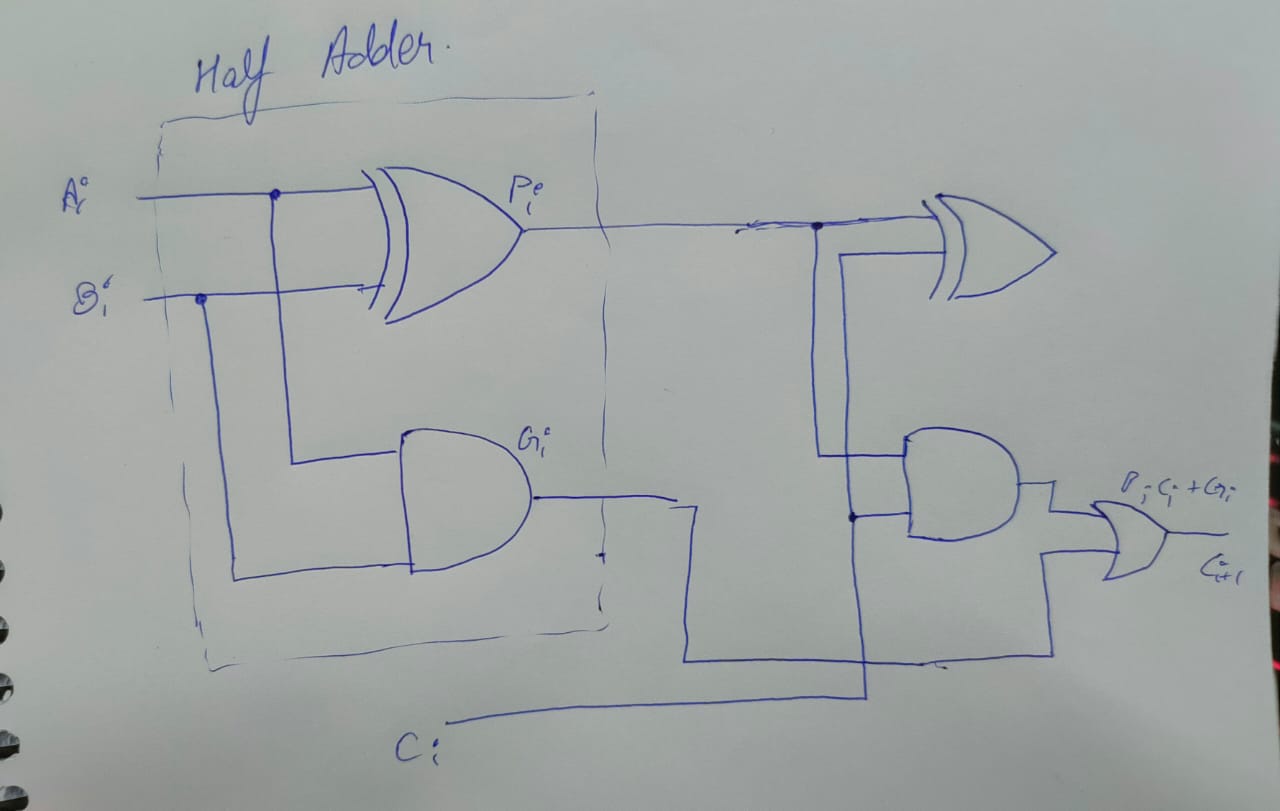 Half Adder.
Ai
Pi
Bi
Gi
PiCi + Gi
Ci+1
Ci